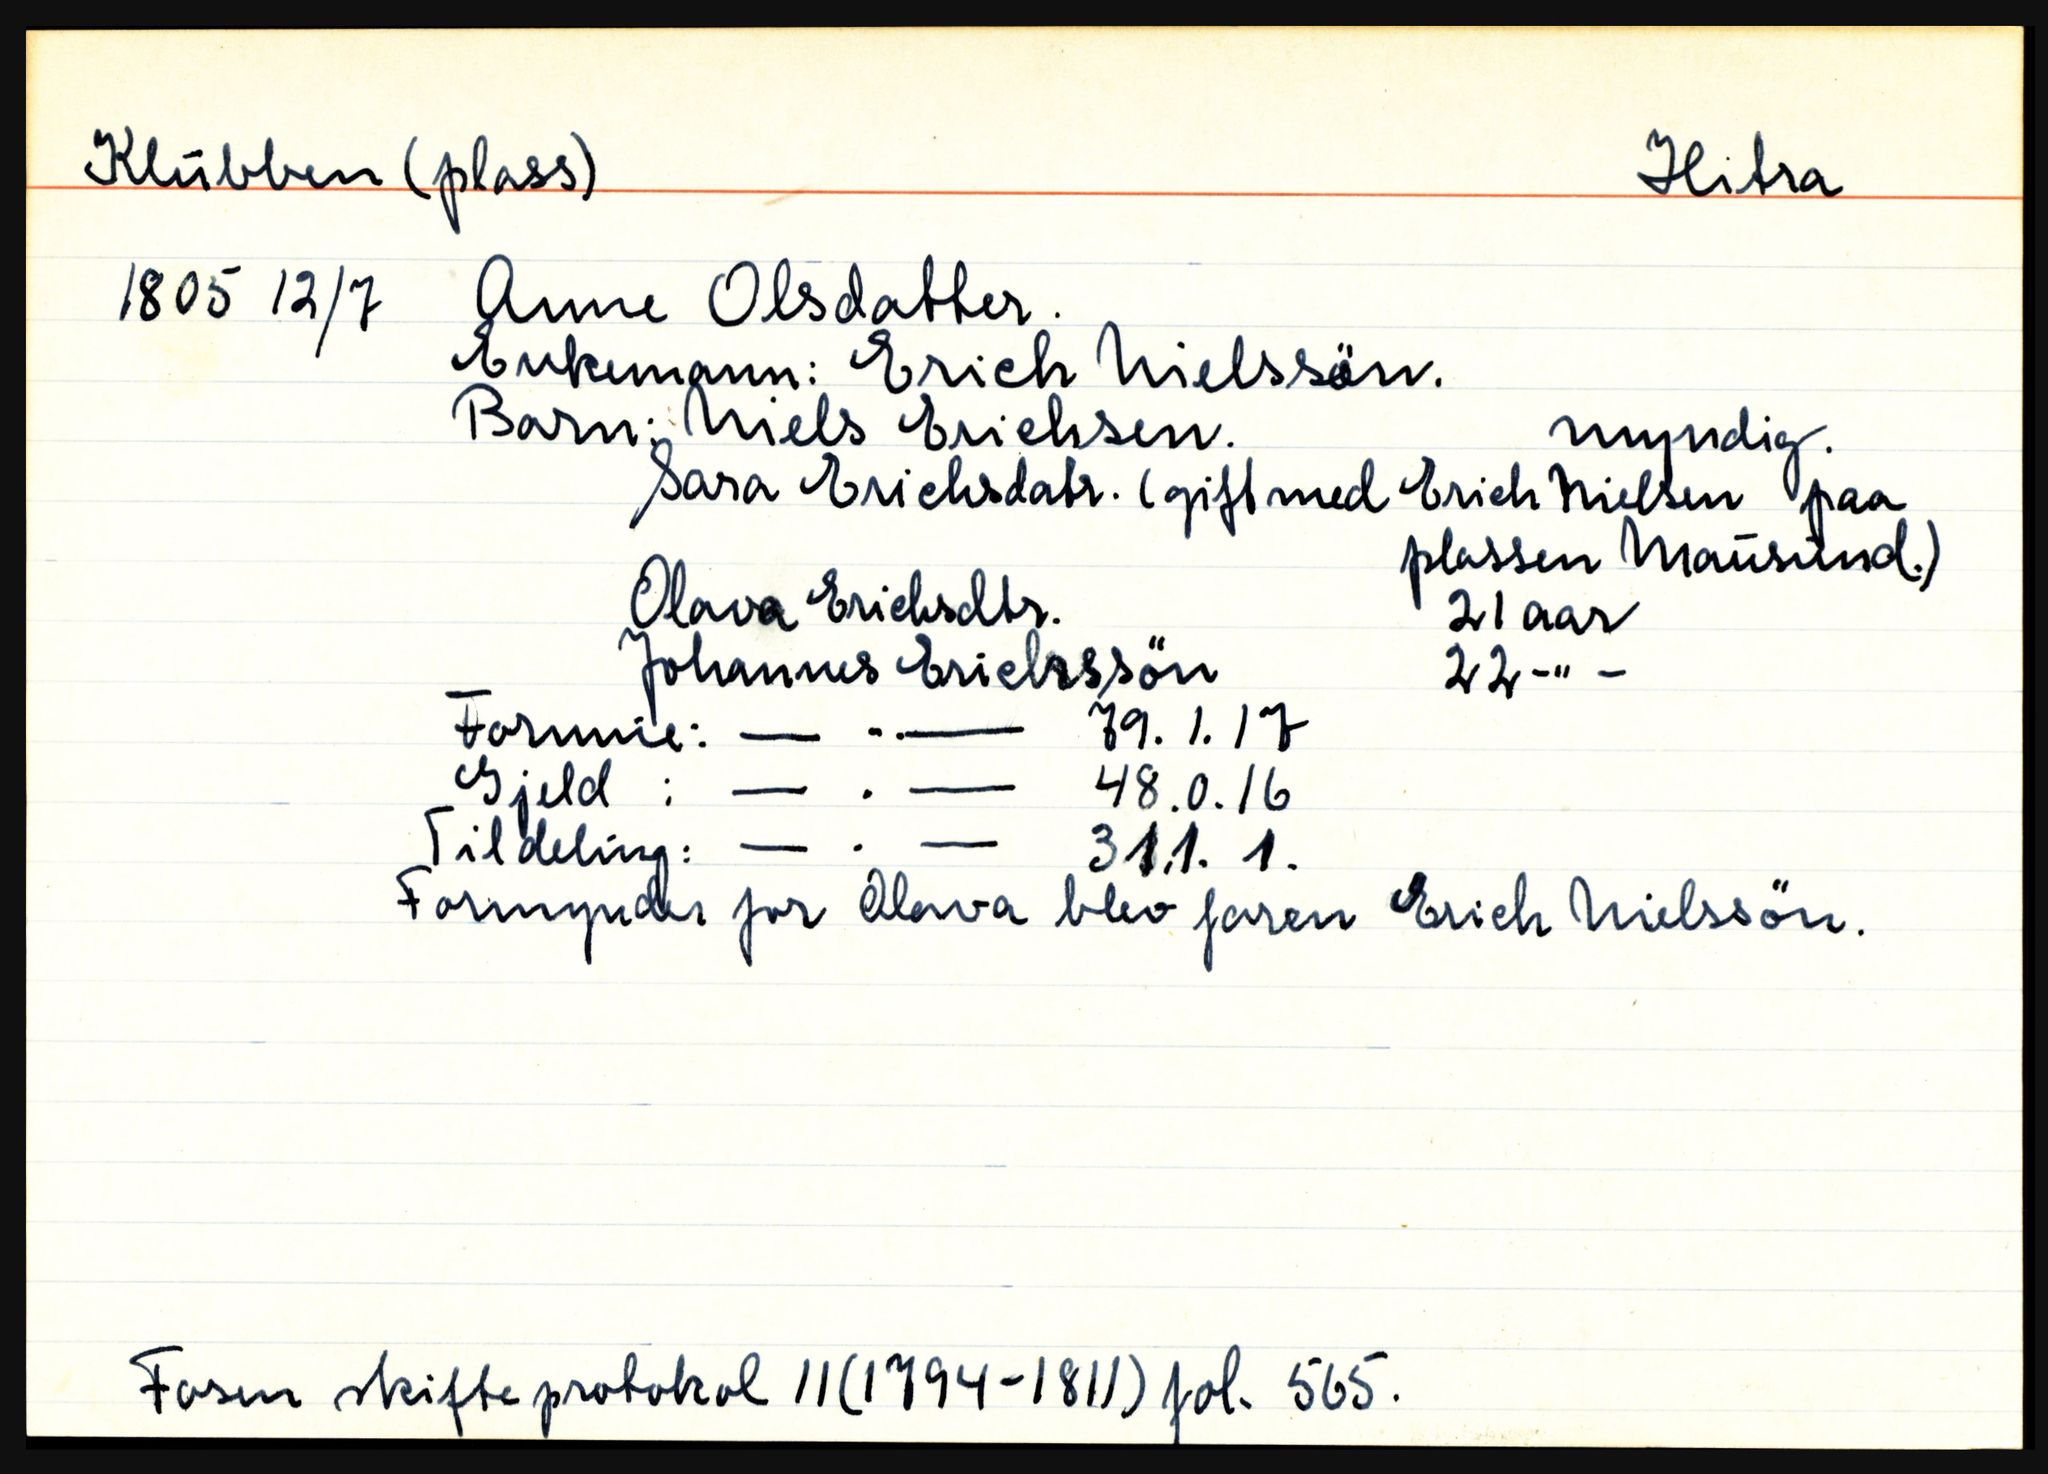 Klübben (plass) Hitra
1805 12/7 Anne Olsdatter.
Enkemann: Erich Nielssön.
Barn: Niels Erichsen. myndig.
Sara Erichsdatr. (gift med Erich Nielsen paa
plassen Maüsünd.)
Olava Erichsdtr. 21 aar
Johannes Erichssön 22 -"-
Formue: — . . — 79. 1. 17
Gjeld : — . — 48. 0. 16
Tildeling: — . — 31. 1. 1.
Formynder for Olava blev faren Erich Nielssön.
Fosen skifteprotokol 11 (1794-1811) fol. 565.